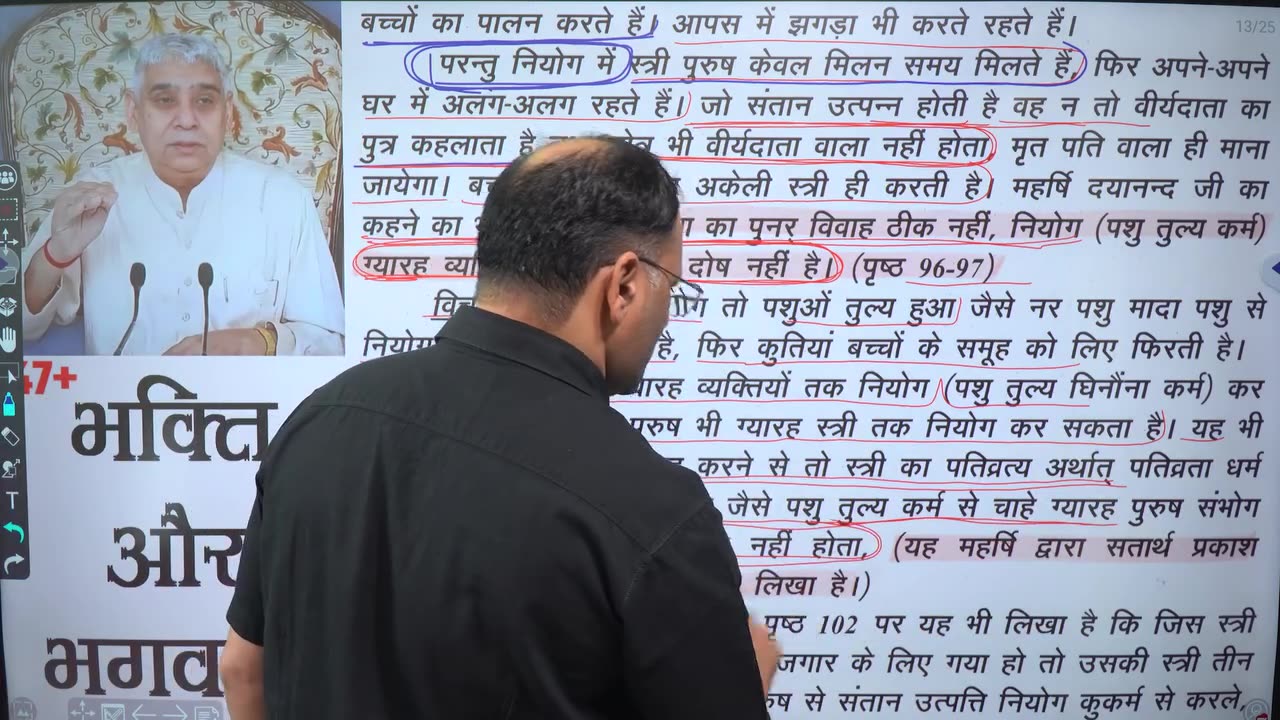 बच्चों का पालन करते हैं। आपस में झगड़ा भी करते रहते हैं।
13/25
परन्तु नियोग में स्त्री पुरुष केवल मिलन समय मिलते हैं, फिर अपने-अपने
घर में अलग-अलग रहते हैं। जो संतान उत्पन्न होती है वह न तो वीर्यदाता का
पुत्र कहलाता है भी वीर्यदाता वाला नहीं होता मृत पति वाला ही माना
जायेगा। अकेली स्त्री ही करती है। महर्षि दयानन्द जी का
कहने का का पुनर् विवाह ठीक नहीं, नियोग (पशु तुल्य कर्म)
ग्यारह दोष नहीं है। (पृष्ठ 96-97)
तो पशुओं तुल्य हुआ जैसे नर पशु मादा पशु से
नियोग है, फिर कुतियां बच्चों के समूह को लिए फिरती है।
व्यक्तियों तक नियोग (पशु तुल्य घिनौंना कर्म) कर
पुरुष भी ग्यारह स्त्री तक नियोग कर सकता है। यह भी
करने से तो स्त्री का पतिव्रत्य अर्थात् पतिव्रता धर्म
जैसे पशु तुल्य कर्म से चाहे ग्यारह पुरुष संभोग
नहीं होता, (यह महर्षि द्वारा सतार्थ प्रकाश
लिखा है।)
पृष्ठ 102 पर यह भी लिखा है कि जिस स्त्री
के लिए गया हो तो उसकी स्त्री तीन
से संतान उत्पत्ति नियोग कुकर्म से करले,
47+
भक्ति
और
T